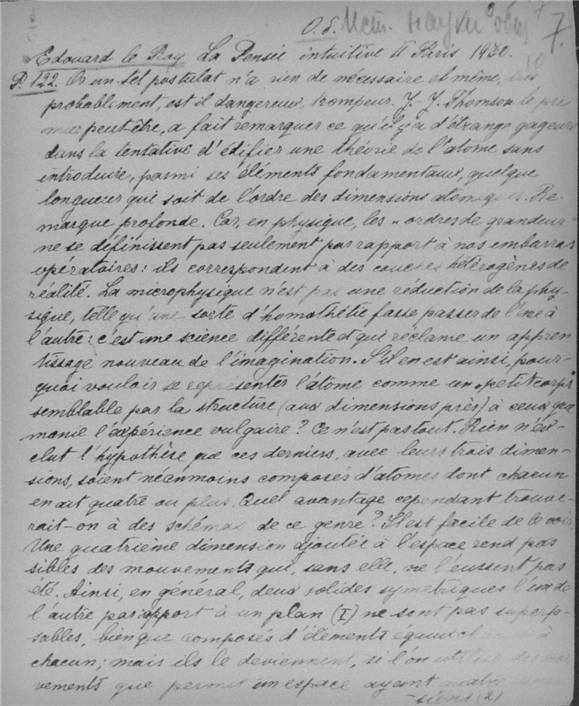 О.д. Ист. науки общ 7
7.
Edouard le Roy La Pensée intuitive II Paris 1930.
P. 122. Or un tel postulat n'a rien de nécessaire et même, très
probablement, est il dangereux, trompeur. J.-J. Thomson le pre
mier peut être, a fait remarquer ce qu'il y a d'étrange gageure
dans la tentative d'édifier une théorie de l'atome sans
introduire, parmi ses éléments fondamentaux, quelque
longueur qui soit de l'ordre des dimensions atomiques. Re
marque profonde. Car, en physique, les „ordres de grandeur"
ne se définissent pas seulement par rapport à nos embarras
opératoires: ils correspondent à des couches hétérogènes de
réalité. La microphysique n'est pas une réduction de la phy-
sique, telle qu'une sorte d'homothétie fasse passer de l'une à
l'autre: c'est une science différente et qui réclame un appren
tissage nouveau de l'imagination. S'il en est ainsi, pour-
quoi vouloir se représenter l'atome comme un „petit corps"
semblable par la structure (aux dimensions près) à ceux que
manie l'expérience vulgaire? Ce n'est pas tout. Rien n'ex-
clut l'hypothèse que ces derniers, avec leurs trois dimen-
sions, soient néanmoins composés d'atomes dont chacun
en ait quatre ou plus. Quel avantage cependant trouve-
rait-on à des schémas de ce genre? Il est facile de le voir
Une quatrième dimension ajoutée à l'espace rend pos
sibles des mouvements qui, sans elle, ne l'eussent pas
été. Ainsi, en général, deux solides symetriques l'un de
l'autre par rapport à un plan (I) ne sont pas superpo-
sables, bien que composés d'éléments égaux chacun à
chacun; mais ils le deviennent, si l'on utilise des mou
vements que permet un espace ayant quatre dimen
sions (2)